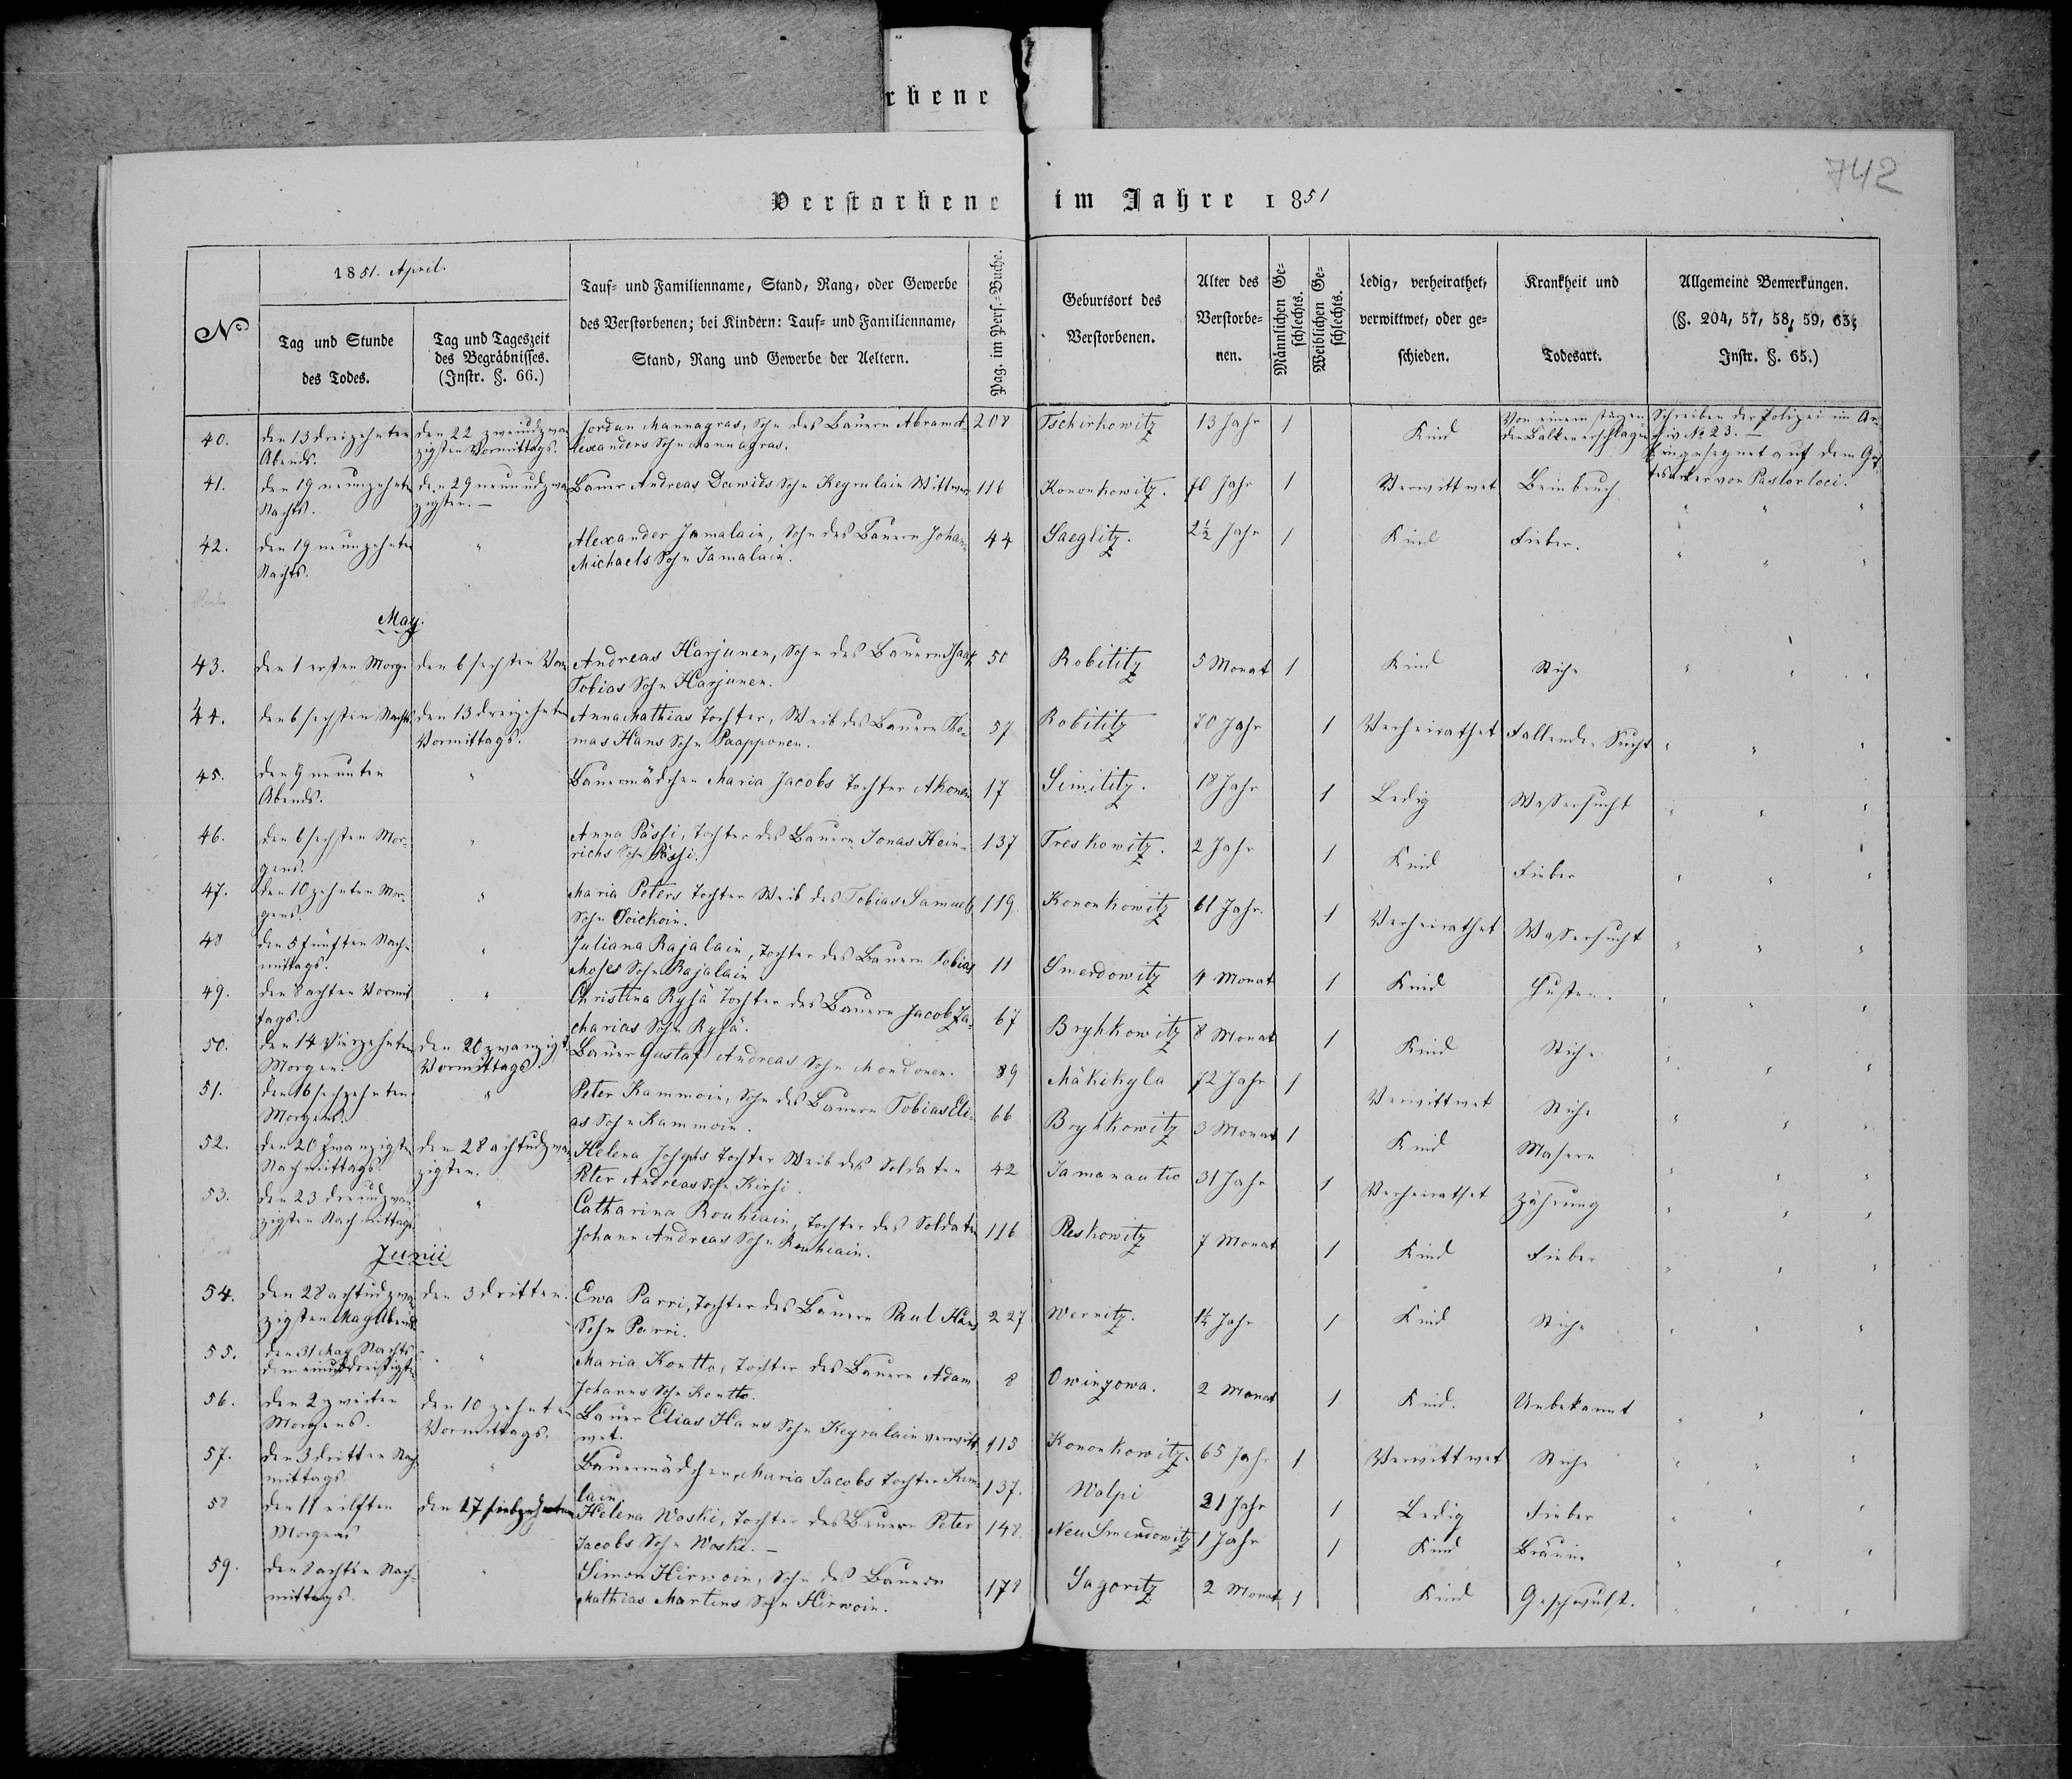 rbene
742
Verstorbene im Jahre 1851
No
1851. April.
Tag und Stunde
des Todes.
Tag und Tageszeit
des Begräbnisses.
(Instr. §. 66.)
Tauf- und Familienname, Stand, Rang, oder Gewerbe
des Verstorbenen; bei Kindern: Tauf- und Familienname,
Stand, Rang und Gewerbe der Aeltern.
Pag. im Pers.-Buche.
Geburtsort des
Verstorbenen.
Alter des
Verstorbe-
nen.
Männlichen Ge-
schlechts.
Weiblichen Ge-
schlechts.
Ledig, verheirathet,
verwittwet, oder ge-
schieden.
Krankheit und
Todesart.
Allgemeine Bemerkungen.
(§. 204, 57, 58, 59, 63;
Instr. §. 65.)
40. den 13 dreizehnten den 22 zweiundzwan Jordan Mannagras, Sohn des Bauern Abram A- 208 Tschirkowitz 13 Jahr 1 Kind Von einem Schreiben der Polizei im Ar-
Abends. zigsten Vormittags. lexanders Sohn Mannagras. den Balken erschlagen chiv No 23. —
Eingesegnet auf dem Got
41. den 19 neunzehnten den 29 neunundzwan Bauer Andreas Dawids Sohn Keyralain Wittwer 116 Kononkowitz. 70 Jahr 1 Verwittwet Beinbruch tesacker von Pastor loci.
Nachts. zigsten. —
42. den 19 neunzehnten " Alexander Jamalain, Sohn des Bauern Johann 44 Saeglitz. 2½ Jahr 1 Kind Fieber. " " "
Nachts. Michaels Sohn Jamalain.
May.
43. den 1 ersten Morge den 6 sechsten Vorm Andreas Harjunen, Sohn des Bauern Isaak 50 Robititz 5 Monat 1 Kind Stiche " " "
Tobias Sohn Harjunen.
44. den 6 sechsten Nachts den 13 dreizehnten Anna Mathias Tochter, Weib des Bauern Tho- 57 Robititz 70 Jahr 1 Verheirathet Fallende Sucht " " "
Vormittags. mas Hans Sohn Paapponen.
45. den 9 neunten " Bauermädchen Maria Jacobs Tochter Akonen 17 Simititz. 18 Jahr 1 Ledig Wassersucht " " "
Abends.
46. den 6 sechsten Mor- " Anna Pässi, Tochter des Bauern Jonas Hein- 137 Treskowitz. 2 Jahr 1 Kind Fieber " " "
gens. richs Sohn Pässi.
47. den 10 zehnten Mor- " Maria Peters Tochter Weib des Tobias Samuels 119 Kononkowitz 61 Jahr. 1 Verheirathet Wassersucht " " "
gens. Sohn Toickoin.
48 den 5 fünften Nach- " Juliana Rajalain, Tochter des Bauern Tobias 11 Smerdowitz 4 Monat 1 Kind Husten. " " "
mittags. Moses Sohn Rajalain
49. den 8 achten Vormit- " Christina Ryhä Tochter des Bauern Jacob Za- 67 Bryhkowitz 8 Monat 1 Kind Stiche " " "
tags. charias Sohn Ryhä.
50. den 14 vierzehnten den 20 zwanzigst Bauer Gustaf Andreas Sohn Mondonen. 89 Mäkikyla 72 Jahr 1 Verwittwet Stiche " " "
Morgen. Vormittags.
51. den 16 sechzehnten " Peter Kammoin, Sohn des Bauern Tobias Eli- 66 Bryhkowitz 3 Monat 1 Kind Masern " " "
Morgens. as Sohn Kammoin.
52. den 20 zwanzigsten den 28 achtundzwan Helena Josephs Tochter Weib des Soldaten 42 Jamanautio 31 Jahr 1 Verheirathet Zehrung " " "
Nachmittags. zigsten. Peter Andreas Sohn Kirsi.
53. den 23 dreiundzwan- " Catharina Rouhiain, Tochter des Soldaten 116 Reskowitz 7 Monat 1 Kind Fieber " " "
zigsten Nachmittags Johann Andreas Sohn Rouhiain.
Junii
54. den 28 achtundzwan den 3 dritten. Ewa Parri, Tochter des Bauern Paul Hans 227 Wernitz. 1½ Jahr 1 Kind Stiche " " "
zigsten May Abends Sohn Parri.
55. den 31 May Nachts " Maria Kontto, Tochter des Bauern Adam 8 Owinzowa. 2 Monat 1 Kind. Unbekannt " " "
den einunddreisigsten Johanns Sohn Kontto.
56. den 2 zweiten den 10 zehnten Bauer Elias Hans Sohn Keyralain verwitt- 115 Kononkowitz. 65 Jahr 1 Verwittwet Stiche " " "
Morgens. Vormittags. wet.
57. den 3 dritten Nach " Bauermädchen, Maria Jacobs Tochter Kem 137. Walpi 21 Jahr 1 Ledig Fieber " " "
mittags. lain.
58 den 11 eilften den 17 siebzehnten Helena Woski, Tochter des Bauern Peter 148. Neu Smerdowitz 1 Jahr 1 Kind Bräune " " "
Morgens Jacobs Sohn Woski. —
59. den 8 achten Nach- " Simon Hirwoin, Sohn des Bauern 178 Sagoritz 2 Monat 1 Kind Geschwulst. " " "
mittags. Mathias Martins Sohn Hirwoin.